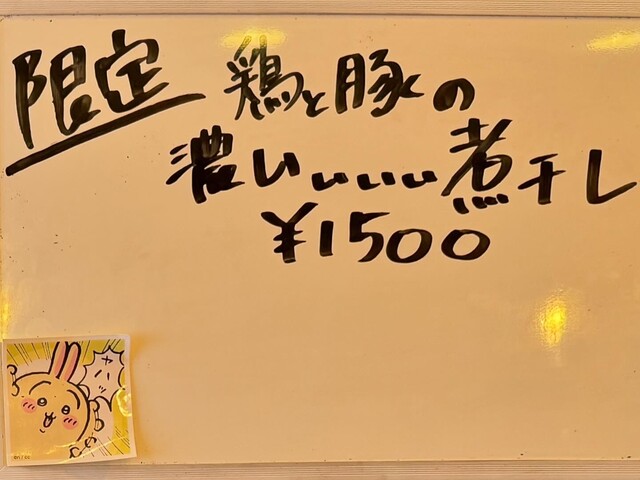 限定 鶏と豚の
濃いぃぃぃ煮干し
¥1500
ヤハッ